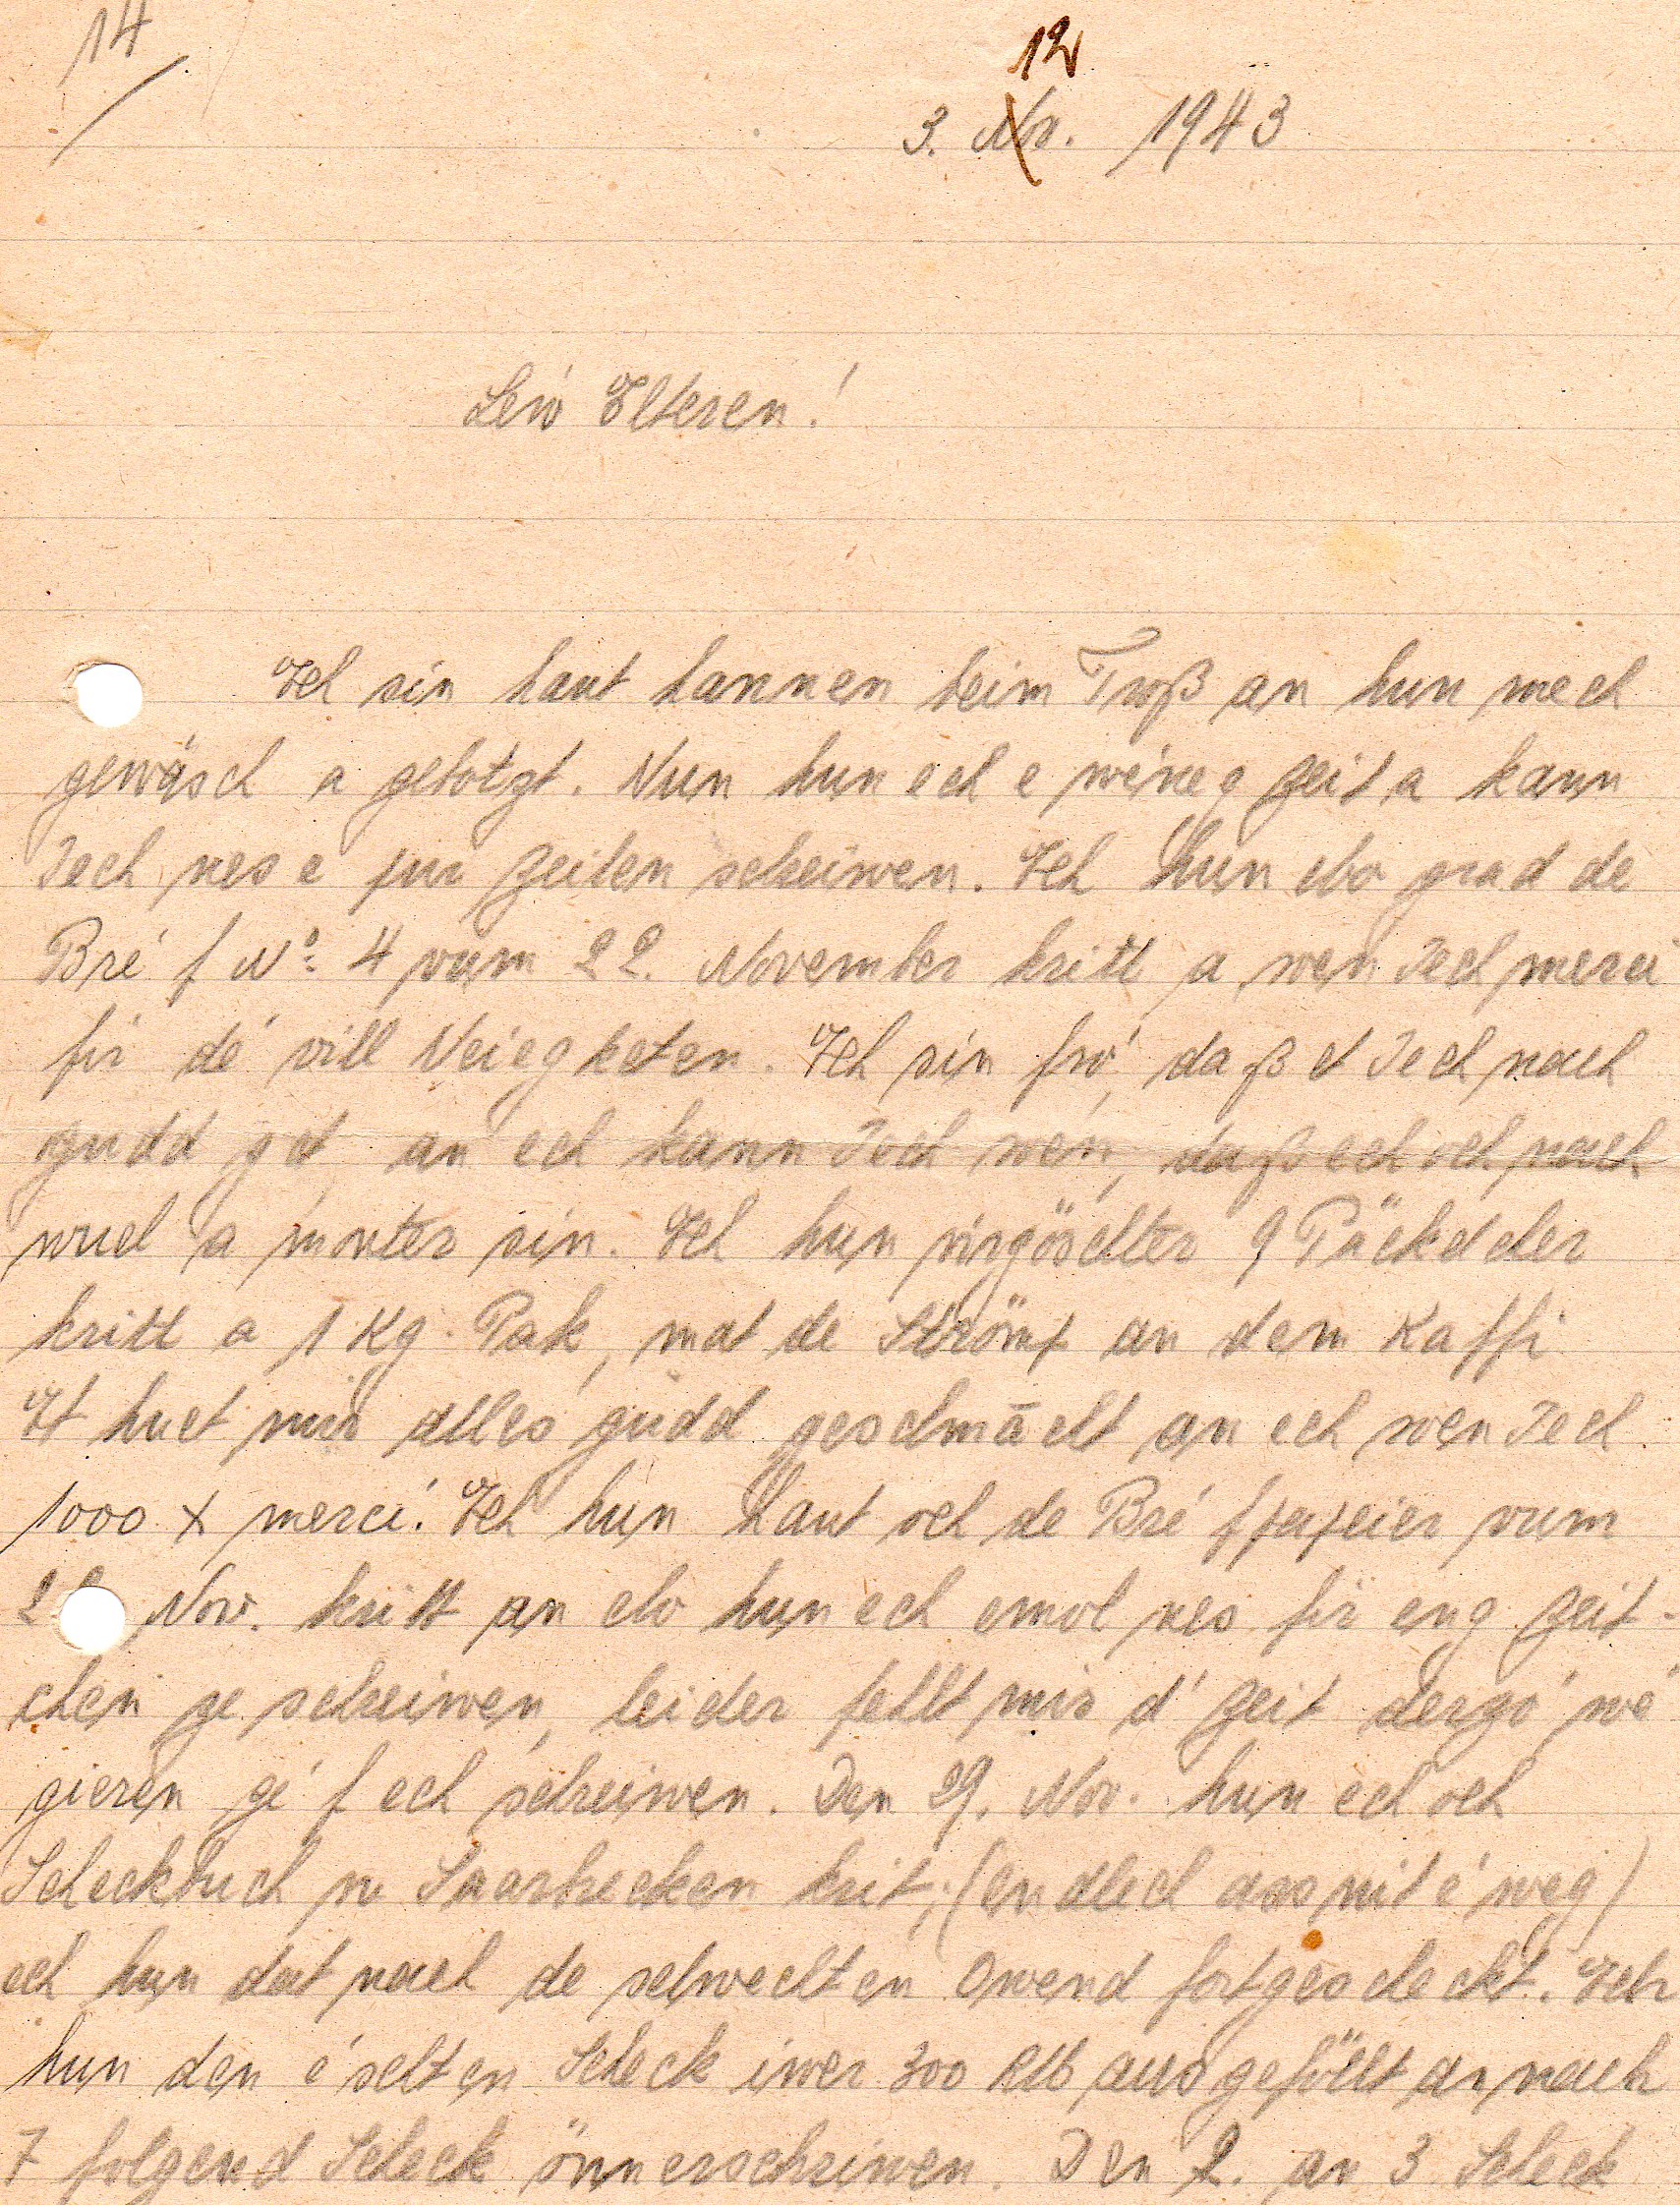 14
12
3. Nov. 1943
Léiw Elteren!
Ech sin haut hannen beim Troß an hun mech
gewäsch a gebotzt. Nun hun ech e wéneg Zeit a kann
Iech nes e pur Zeilen schreiwen. Ech hun elo grad de
Bréf No: 4 vum 22. November kritt a soen Iech merci
fir dé vill Neiegketen. Ech sin fro', daß et Iech nach
gudd get an ech kann Iech soen, daß ech och nach
wuel a monter sin. Ech hun virgöschter 9 Päckelcher
kritt a 1 Kg. Pak, mat de Strömp an dem Kaffi
Et huet mir alles gudd geschmācht an ech soen Iech
1000 x merci. Ech hun haut och de Bréfpapeier vum
2 Nov. kritt an elo hun ech emol nes fir eng Zeit-
chen ze schreiwen, leider fehlt mir d'Zeit dergo' we'
gieren ge'f ech schreiwen. Den 29. Nov. hun ech och
Scheckbuch vu Saarbrecken krit, (endlech ass mit é weg)
ech hun dat nach de selwechten Owend fortgescheckt. Ech
hun den e'schten Scheck iwer 300 RM ausgeföllt an nach
7 folgend Scheck önnerschriwen. Den 2. an 3 Scheck